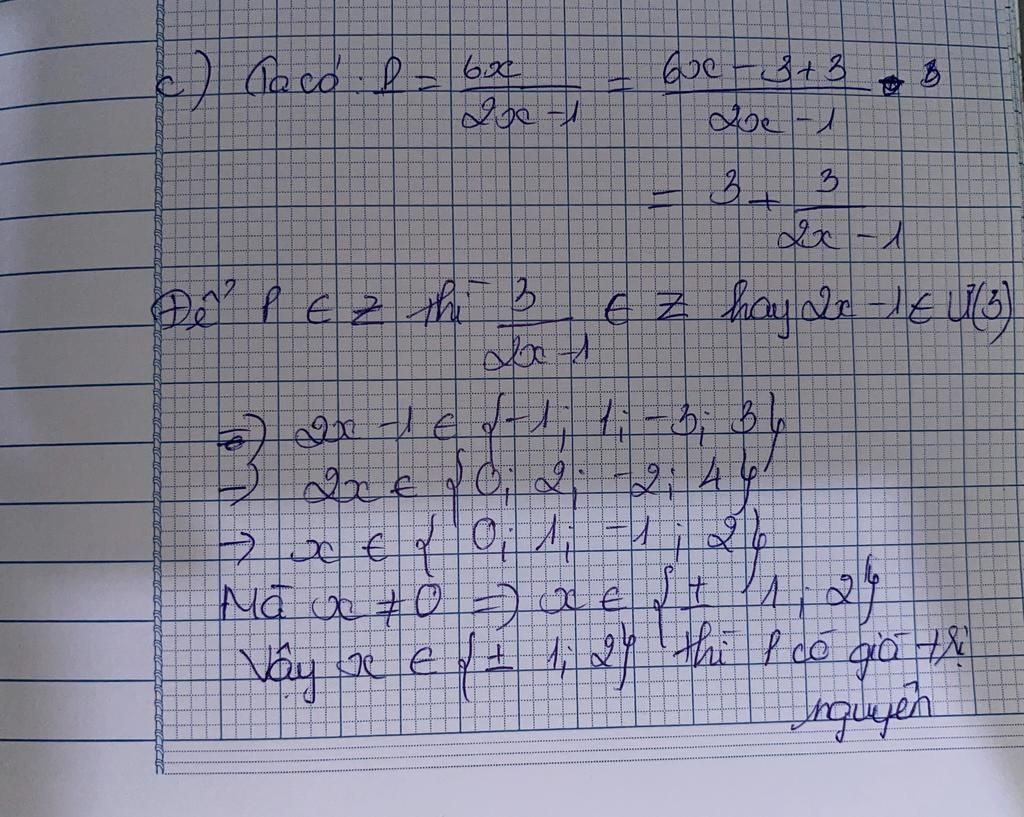 c) Ta có: P = 6x / 2x - 1 = 6x - 3 + 3 / 2x - 1
= 3 + 3 / 2x - 1
Để P ∈ Z thì 3 / 2x - 1 ∈ Z hay 2x - 1 ∈ Ư(3)
=> 2x - 1 ∈ {-1; 1; -3; 3}
-> 2x ∈ {0; 2; -2; 4}
-> x ∈ {0; 1; -1; 2}
Mà x ≠ 0 => x ∈ {± 1; 2}
Vậy x ∈ {± 1; 2} thì P có giá trị
nguyên